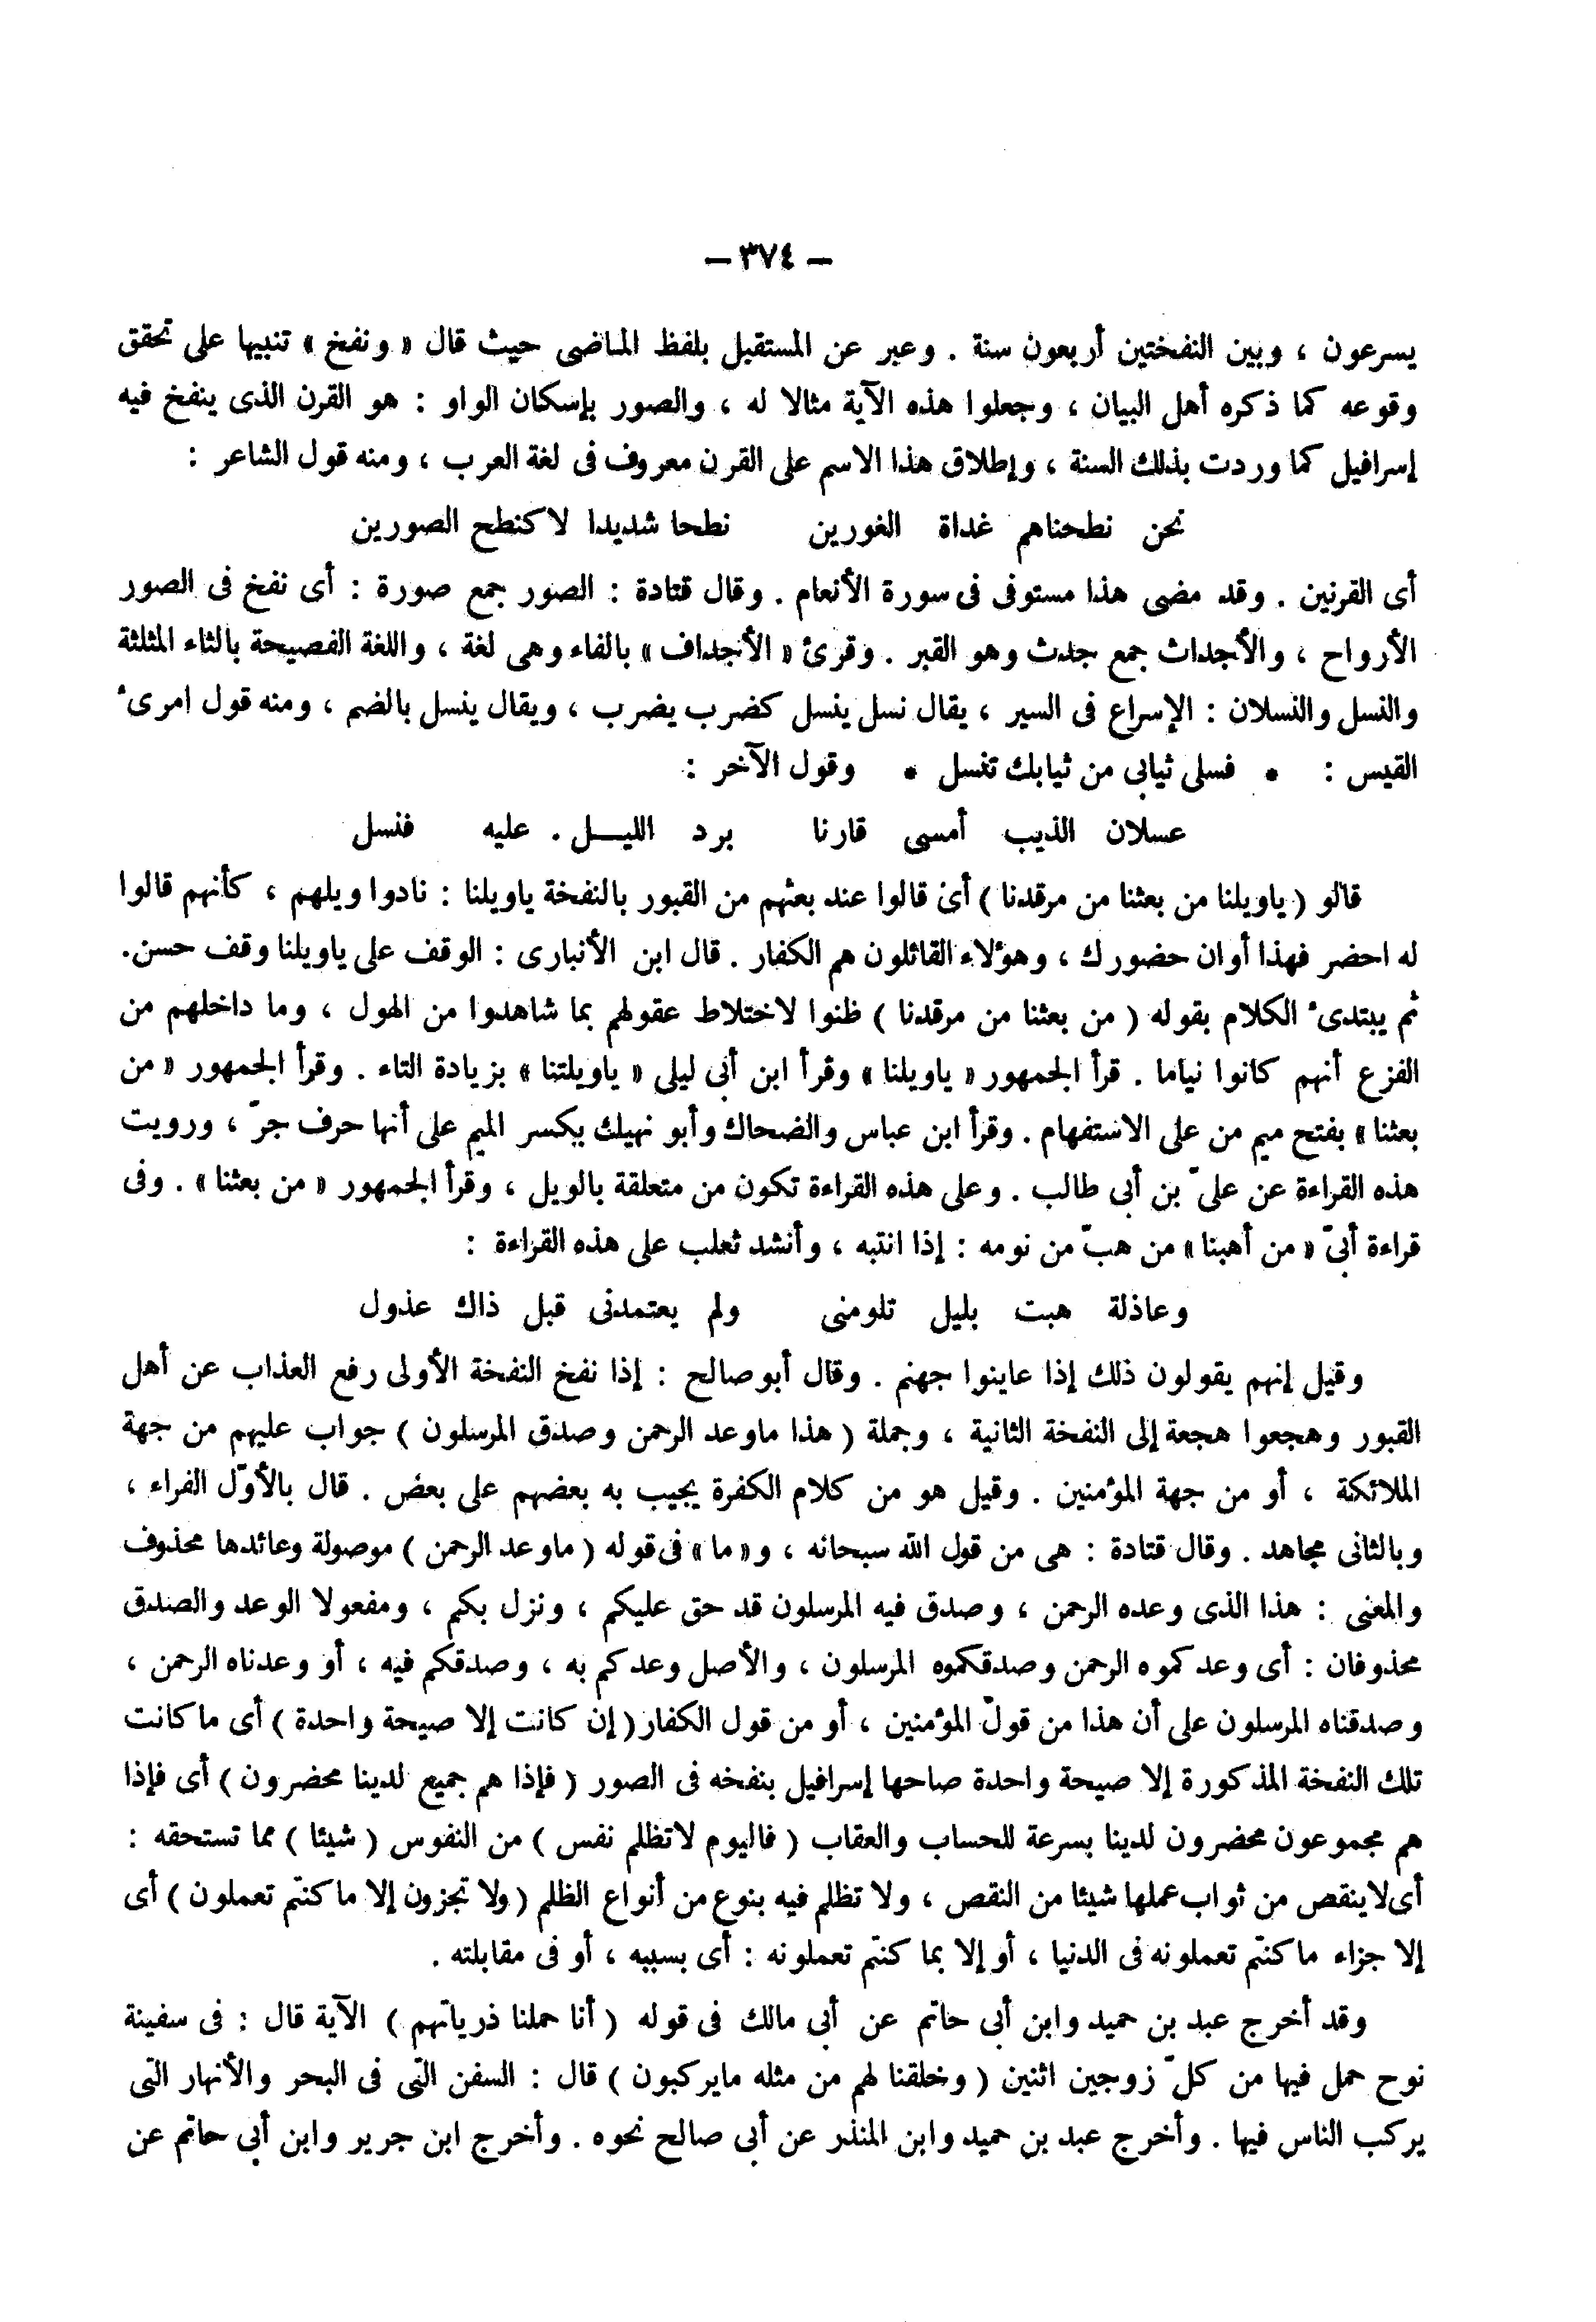 – ٣٧٤ –
يسرعون ، وبين النفختين أربعون سنة . وعبر عن المستقبل بلفظ الماضى حيث قال « ونفخ » تنبيها على تحقق
وقوعه كما ذكره أهل البيان ، وجعلوا هذه الآية مثالا له ، والصور بإسكان الواو : هو القرن الذى ينفخ فيه
إسرافيل كما وردت بذلك السنة ، وإطلاق هذا الاسم على القرن معروف فى لغة العرب ، ومنه قول الشاعر :
نحن نطحناهم غداة الغورين نطحا شديدا لا كنطح الصورين
أى القرنين . وقد مضى هذا مستوفى فى سورة الأنعام . وقال قتادة : الصور جمع صورة : أى نفخ فى الصور
الأرواح ، والأجداث جمع جدث وهو القبر . وقرئ « الأجداف » بالفاء وهى لغة ، واللغة الفصيحة بالثاء المثلثة
والنسل والنسلان : الإسراع فى السير ، يقال نسل ينسل كضرب يضرب ، ويقال ينسل بالضم ، ومنه قول امرىء
القيس : * فسلى ثيابى من ثيابك تنسل * وقول الآخر :
عسلان الذيب أمسى قارنا برد الليـــل . عليه فنسل
قالو ( ياويلنا من بعثنا من مرقدنا ) أى قالوا عند بعثهم من القبور بالنفخة ياويلنا : نادوا ويلهم ، كأنهم قالوا
له احضر فهذا أوان حضورك ، وهؤلاء القائلون هم الكفار . قال ابن الأنبارى : الوقف على ياويلنا وقف حسن.
ثم يبتدىء الكلام بقوله ( من بعثنا من مرقدنا ) ظنوا لاختلاط عقولهم بما شاهدوا من الهول ، وما داخلهم من
الفزع أنهم كانوا نياما . قرأ الجمهور « ياويلنا » وقرأ ابن أبى ليلى « ياويلتنا » بزيادة التاء . وقرأ الجمهور « من
بعثنا » بفتح ميم من على الاستفهام . وقرأ ابن عباس والضحاك وأبو نهيك بكسر الميم على أنها حرف جرّ ، ورويت
هذه القراءة عن علىّ بن أبى طالب . وعلى هذه القراءة تكون من متعلقة بالويل ، وقرأ الجمهور « من بعثنا » . وفى
قراءة أبىّ « من أهبنا » من هبّ من نومه : إذا انتبه ، وأنشد ثعلب على هذه القراءة :
وعاذلة هبت بليل تلومنى ولم يعتمدنى قبل ذاك عذول
وقيل إنهم يقولون ذلك إذا عاينوا جهنم . وقال أبو صالح : إذا نفخ النفخة الأولى رفع العذاب عن أهل
القبور وهجعوا هجعة إلى النفخة الثانية ، وجملة ( هذا ماوعد الرحمن وصدق المرسلون ) جواب عليهم من جهة
الملائكة ، أو من جهة المؤمنين . وقيل هو من كلام الكفرة يجيب به بعضهم على بعض . قال بالأوّل الفراء ،
وبالثانى مجاهد . وقال قتادة : هى من قول الله سبحانه ، و« ما » فى قوله ( ماوعد الرحمن ) موصولة وعائدها محذوف
والمعنى : هذا الذى وعده الرحمن ، وصدق فيه المرسلون قد حق عليكم ، ونزل بكم ، ومفعولا الوعد والصدق
محذوفان : أى وعدكموه الرحمن وصدقكموه المرسلون ، والأصل وعدكم به ، وصدقكم فيه ، أو وعدناه الرحمن ،
وصدقناه المرسلون على أن هذا من قول المؤمنين ، أو من قول الكفار ( إن كانت إلا صيحة واحدة ) أى ما كانت
تلك النفخة المذكورة إلا صيحة واحدة صاحها إسرافيل بنفخه فى الصور ( فإذا هم جميع لدينا محضرون ) أى فإذا
هم مجموعون محضرون لدينا بسرعة للحساب والعقاب ( فاليوم لاتظلم نفس ) من النفوس ( شيئا ) مما تستحقه :
أى لاينقص من ثواب عملها شيئا من النقص ، ولا تظلم فيه بنوع من أنواع الظلم ( ولا تجزون إلا ما كنتم تعملون ) أى
إلا جزاء ما كنتم تعملونه فى الدنيا ، أو إلا بما كنتم تعملونه : أى بسببه ، أو فى مقابلته .
وقد أخرج عبد بن حميد وابن أبى حاتم عن أبى مالك فى قوله ( أنا حملنا ذرياتهم ) الآية قال : فى سفينة
نوح حمل فيها من كلّ زوجين اثنين ( وخلقنا لهم من مثله مايركبون ) قال : السفن التى فى البحر والأنهار التى
يركب الناس فيها . وأخرج عبد بن حميد وابن المنذر عن أبى صالح نحوه . وأخرج ابن جرير وابن أبى حاتم عن